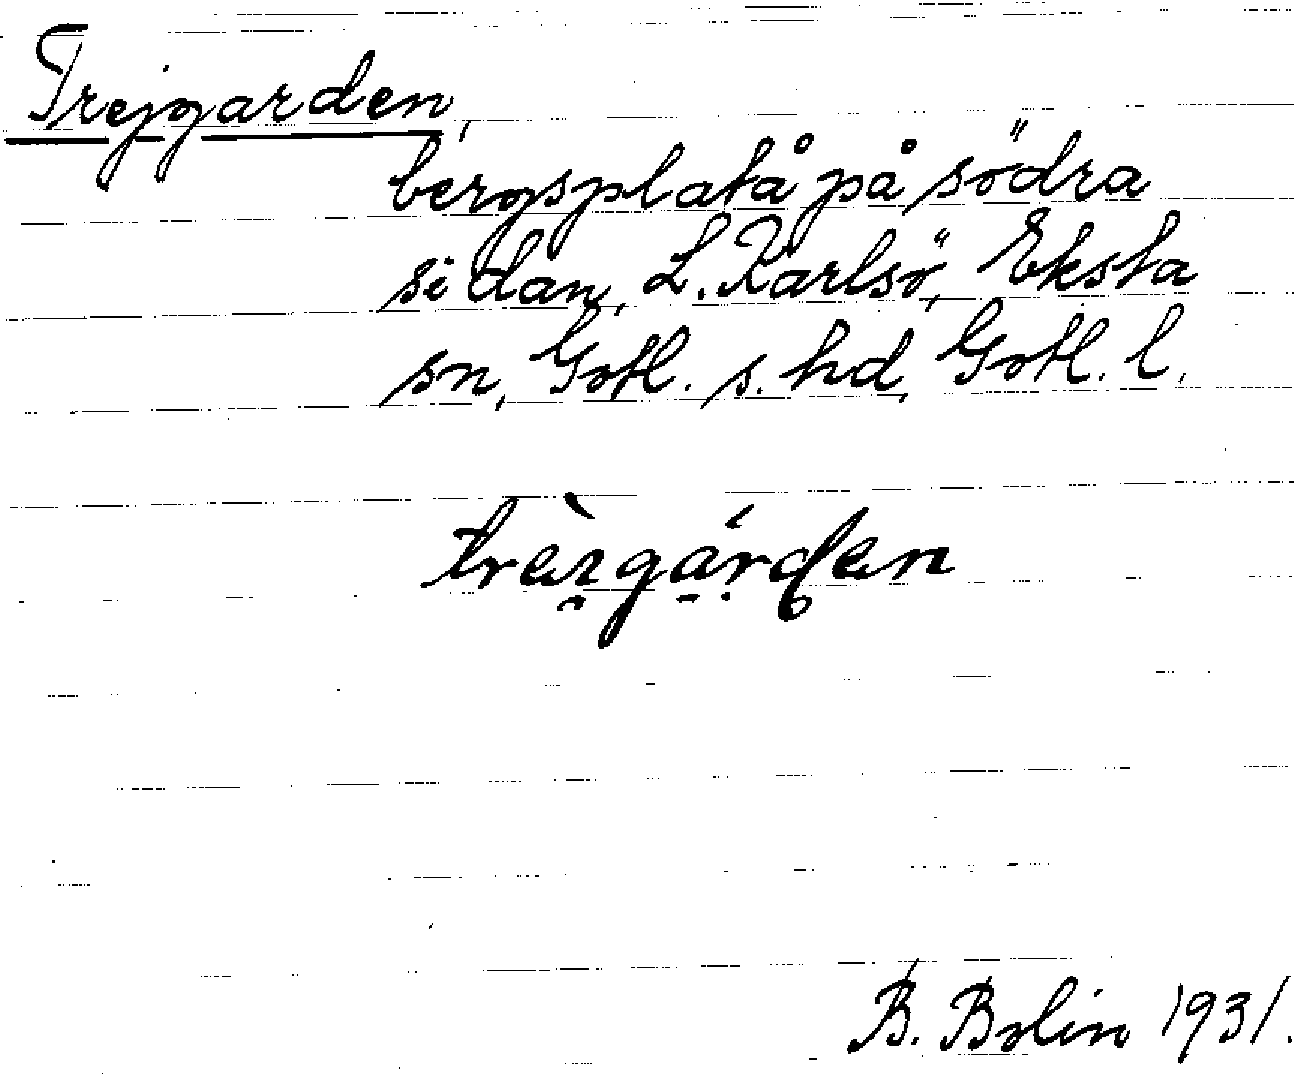 Trejgarden,
bergsplatå på södra
sidan, L. Karlsö, Eksta
sn, Gotl. s. hd, Gotl. l.
B. Bolin 1931.